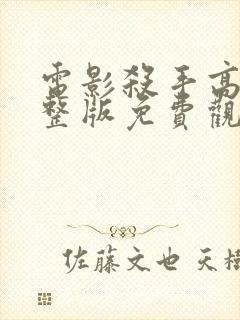 電影殺手高
整版免費觀
佐藤文也 天樹